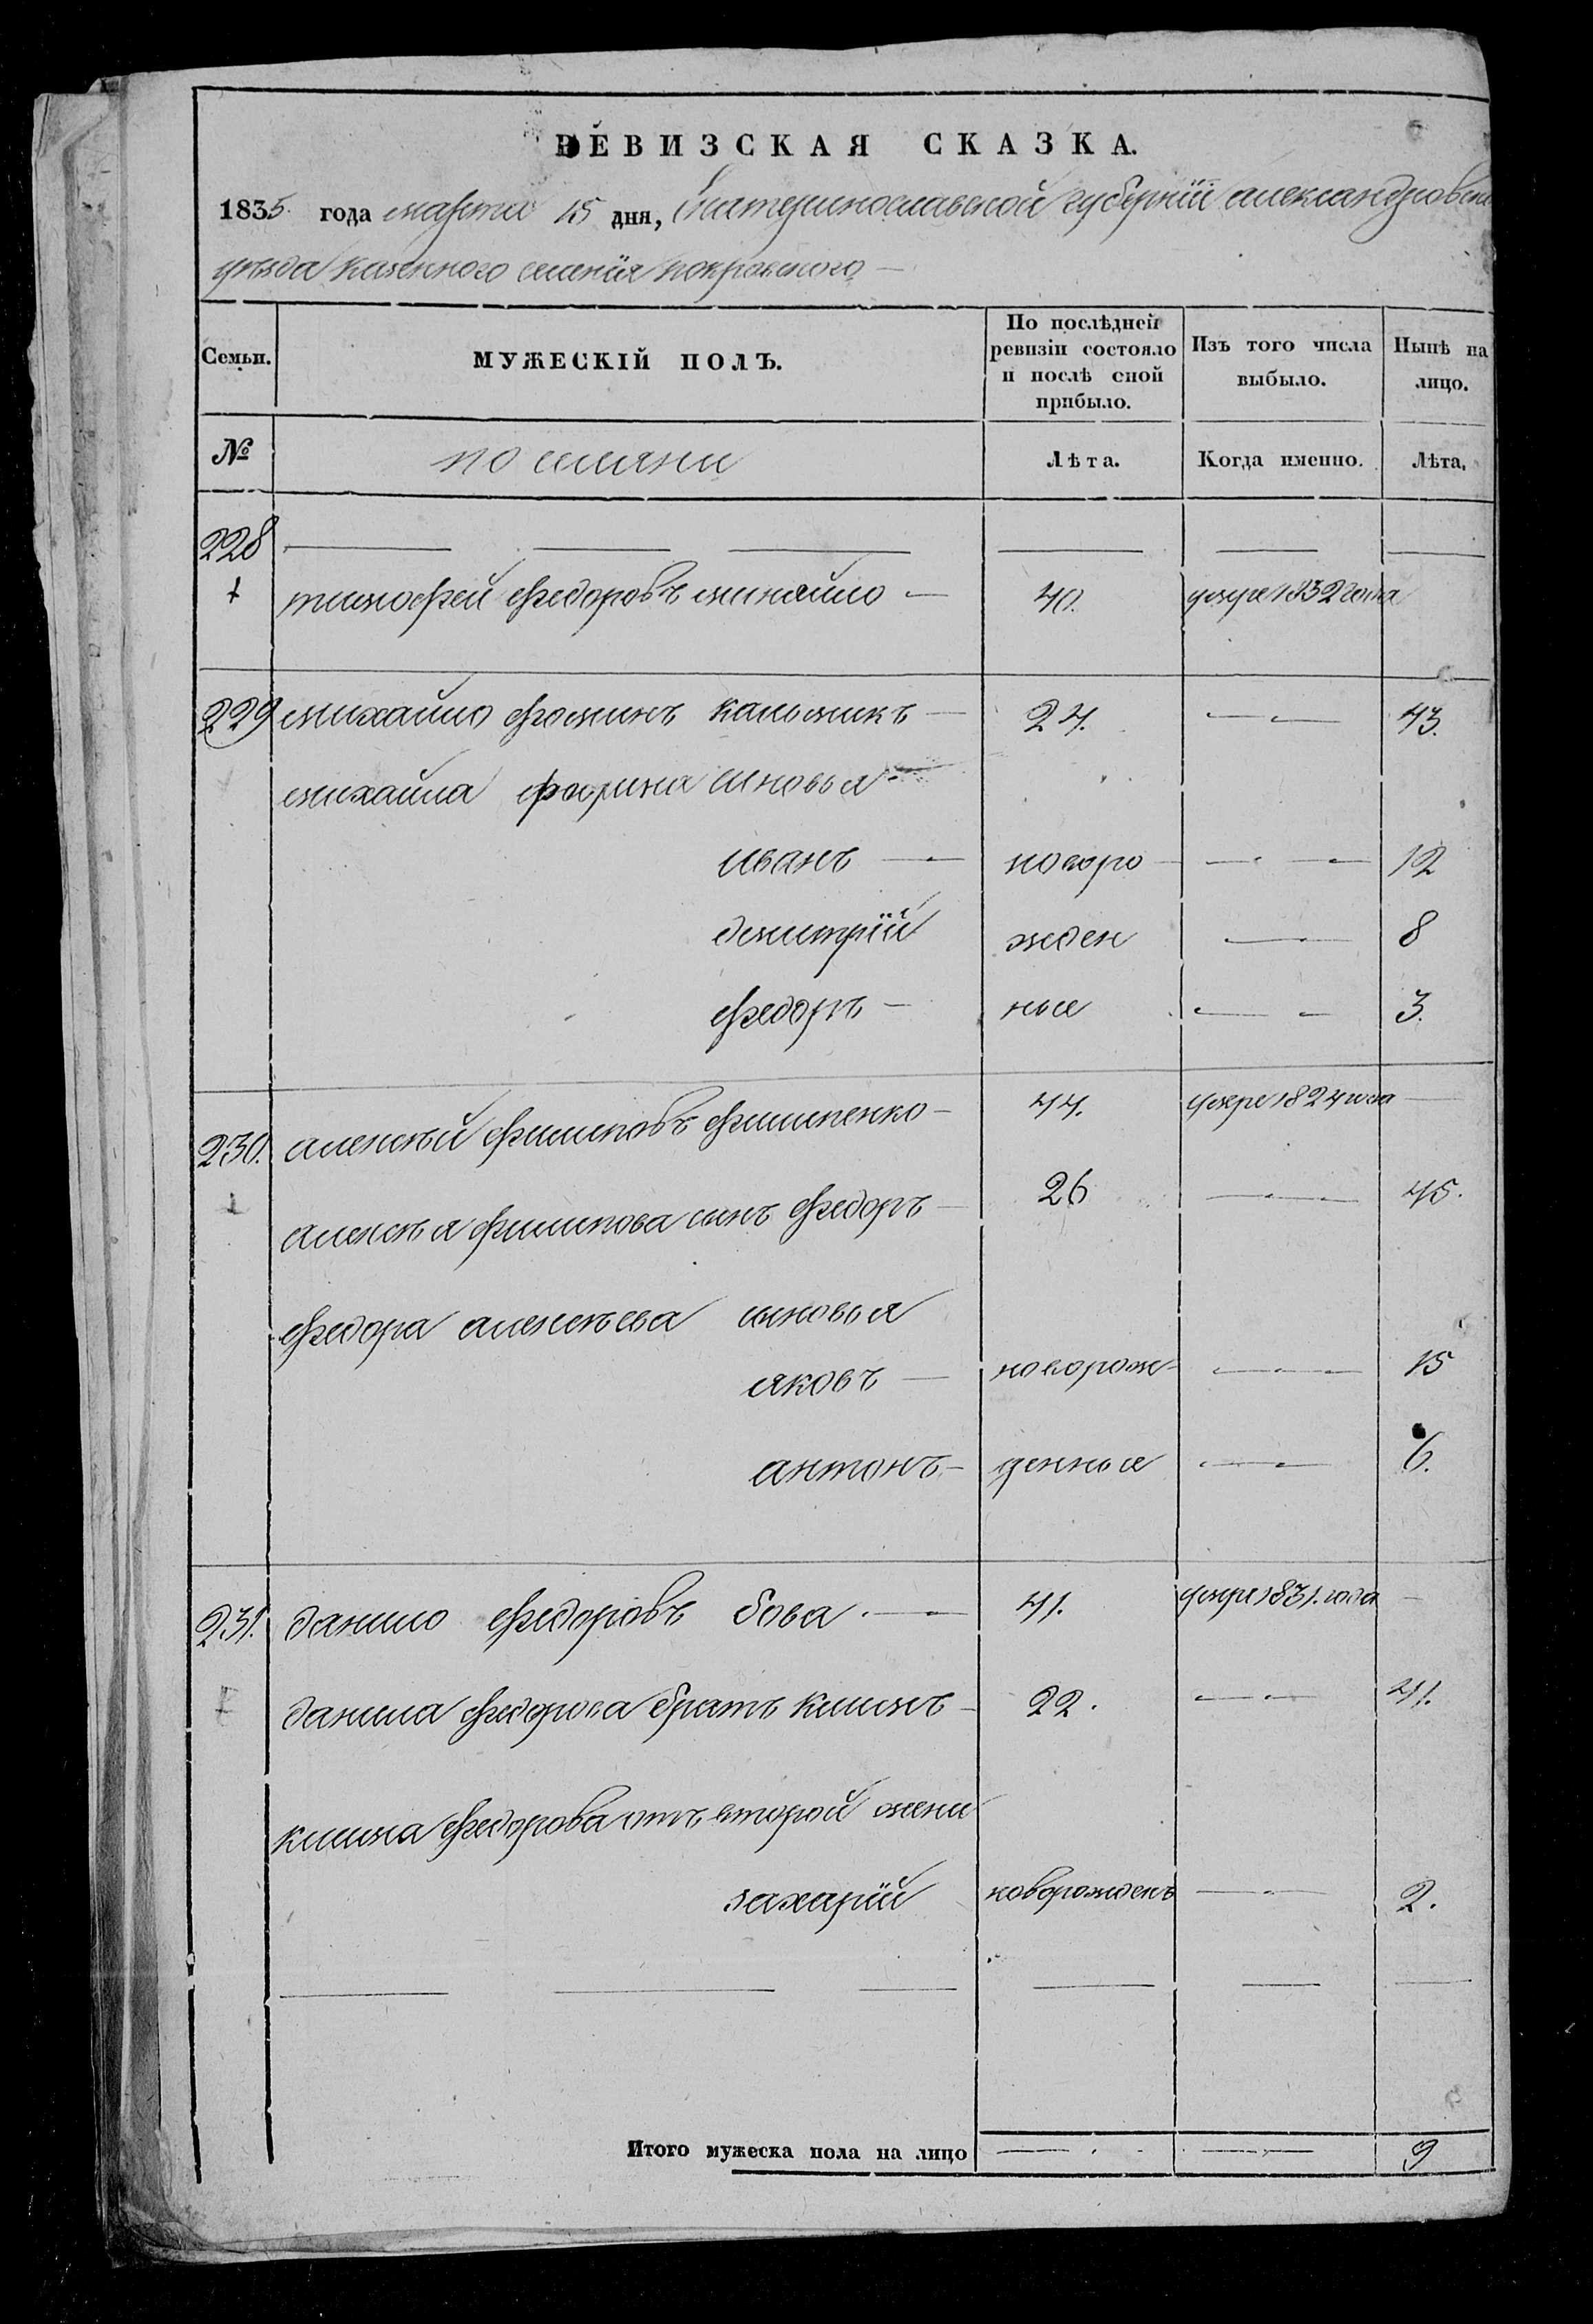 РЕВИЗСКАЯ СКАЗКА.
1835 года марта 15 дня, Екатеринославской губернїи александровска
уѣзда казенного селенїя покровского —
Семьи. МУЖЕСКІЙ ПОЛЪ. По послѣдней ревизіи состояло и послѣ оной прибыло. Изъ того числа выбыло. Нынѣ на лицо.
№ Лѣта. Когда именно. Лѣта.
228 — — — — — —
тимофей федоровъ михайло — 40. умре 1832 года
229 михайло фоминъ калмикъ — 24. — 43.
михайла фомина синовья
иванъ — новоро — — 12
дмитрїй жден — 8
федоръ — ные — 3.
230. алексѣй филиповъ филипенко — 44. умре 1824 года —
алексѣя филипова синъ федоръ — 26 — 45.
федора алексѣева синовья
яковъ — новорож — 15
антонъ — денные — 6.
231. данило федоровъ бова — 41. умре 1831. года —
данила федорова братъ климъ — 22. — 41.
клима федорова отъ второй жени
захарїй новорожденъ — 2.
— — — — — —
Итого мужеска пола на лицо — — 9